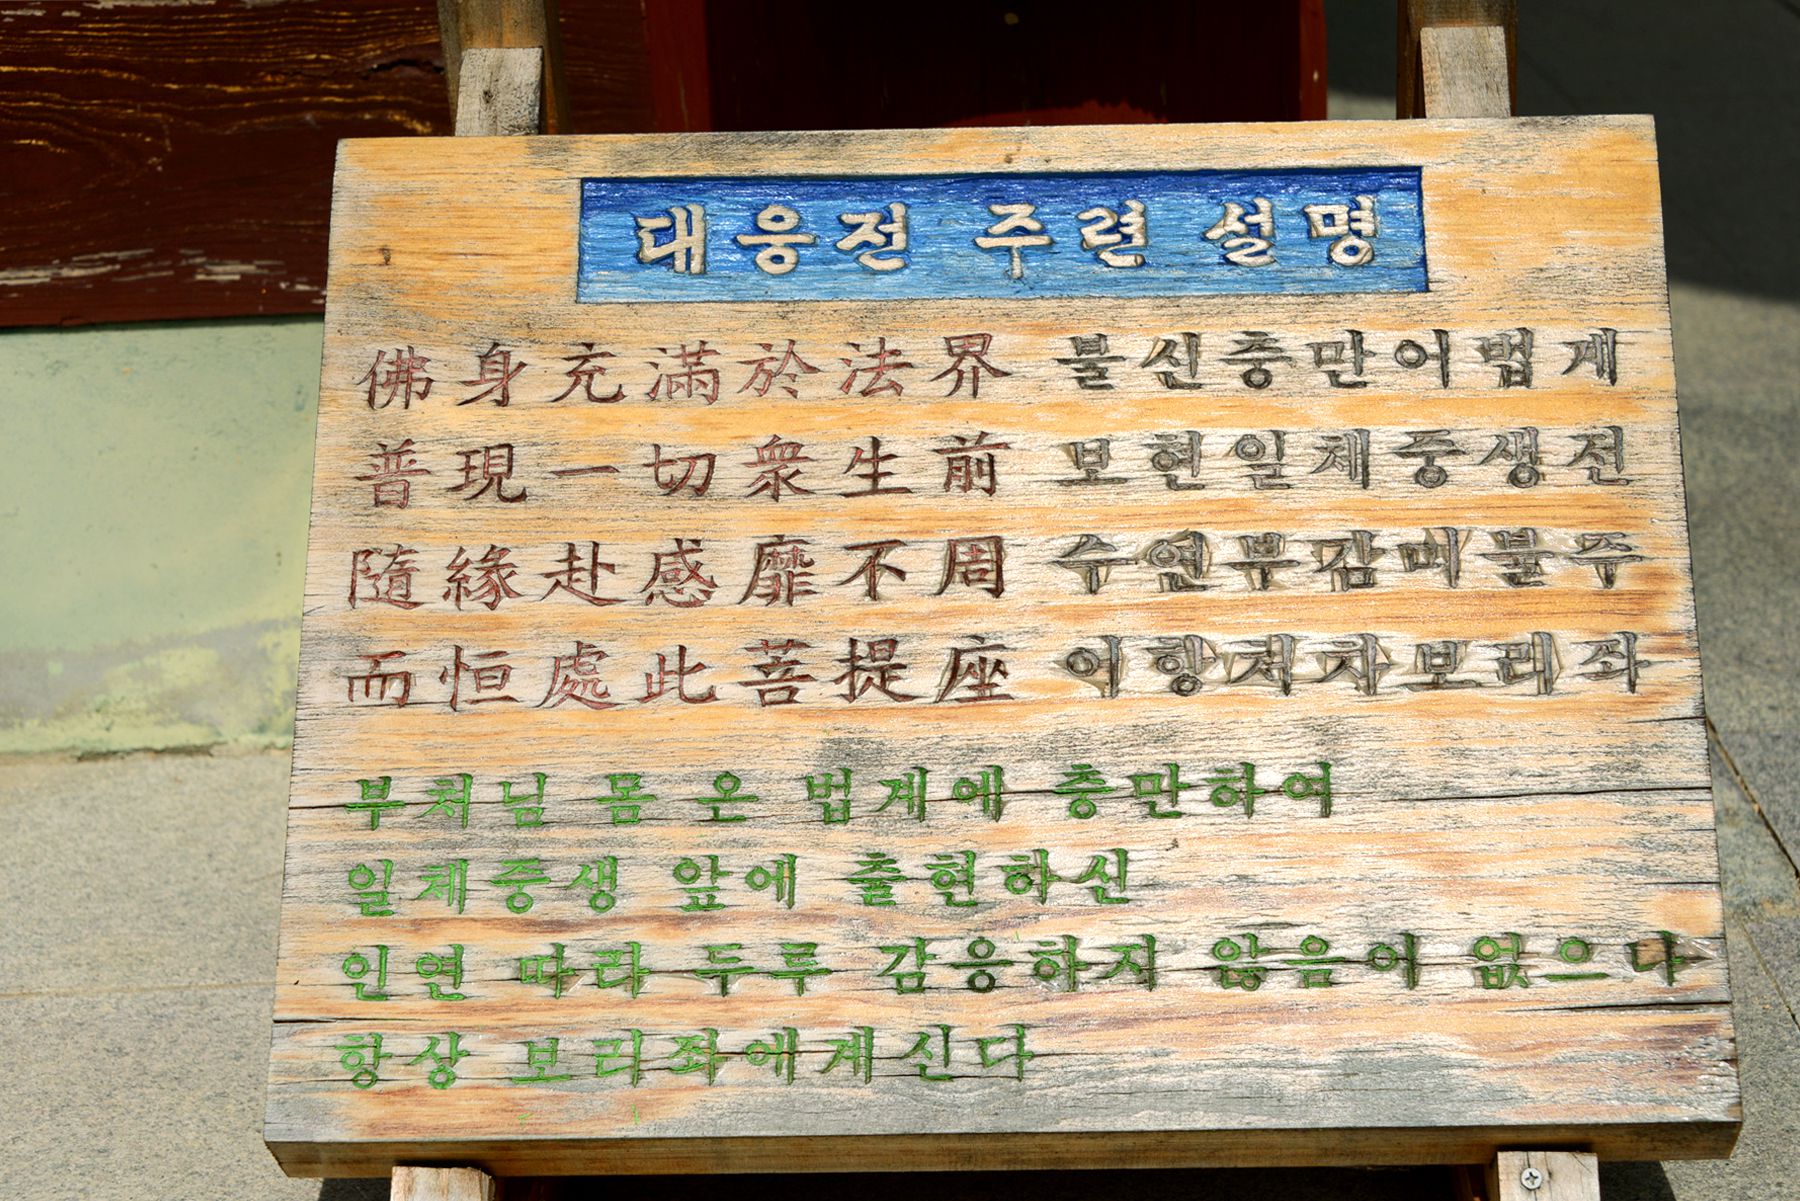 대웅전 주련 설명
佛身充滿於法界 불신충만어법계
普現一切衆生前 보현일체중생전
隨緣赴感靡不周 수연부감미불주
而恒處此菩提座 이항처차보리좌
부처님 몸 온 법계에 충만하여
일체중생 앞에 출현하신
인연 따라 두루 감응하지 않음이 없으나
항상 보리좌에계신다